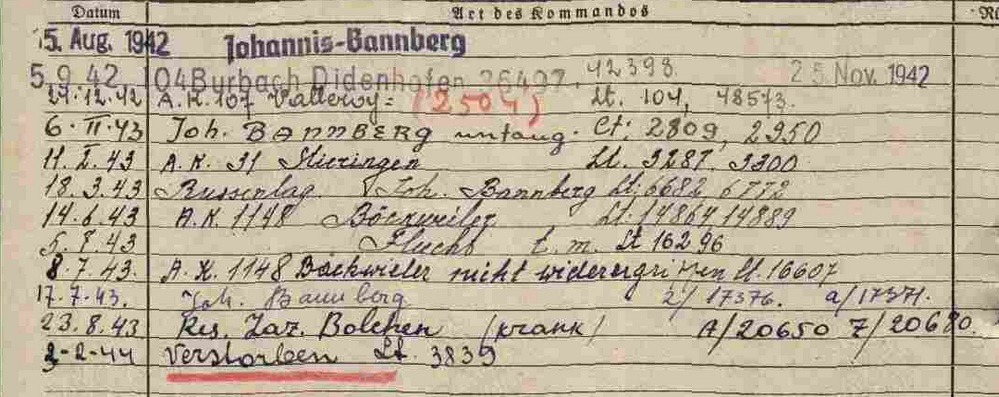 Datum Art des Kommandos
5. Aug. 1942 Johannis-Bannberg
5.9.42 104 Burbach Didenhofen 26497. 42393. 25. Nov. 1942
24.12.42 A.K. 107 Valleroy = (2504) Lt. 104, 48573.
6.II.43 Joh. BANNBERG untaug. Lt: 2809, 2950
11.I.43 A.K. 31 Stieringen Lt. 3287. 3300
18.3.43 Russenlag. Joh. Bannberg Lt: 6682 6772
14.6.43 A.K. 1148 Böckweiler Lt: 14864 14889
5.7.43 Flucht t.m. Lt 16296
8.7.43. A.K. 1148 Böckwieler nicht widerergriffen Lt. 16607
17.7.43. Joh. Bannberg z/17376. a/17371.
23.8.43 Res. Laz. Bolchen (krank) A/20650 Z/20680
2-2-44 Verstorben Lt. 3839